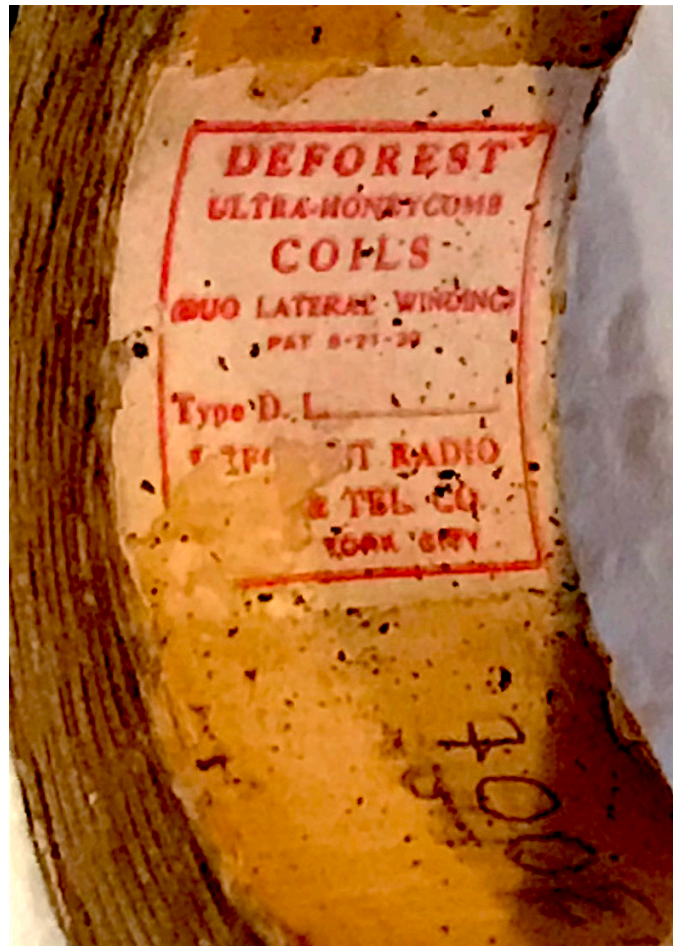 DEFOREST
ULTRA-HONEYCOMB
COILS
(DUO LATERAL WINDING)
PAT
Type D. L.
RADIO
& TEL. CO.
YORK CITY